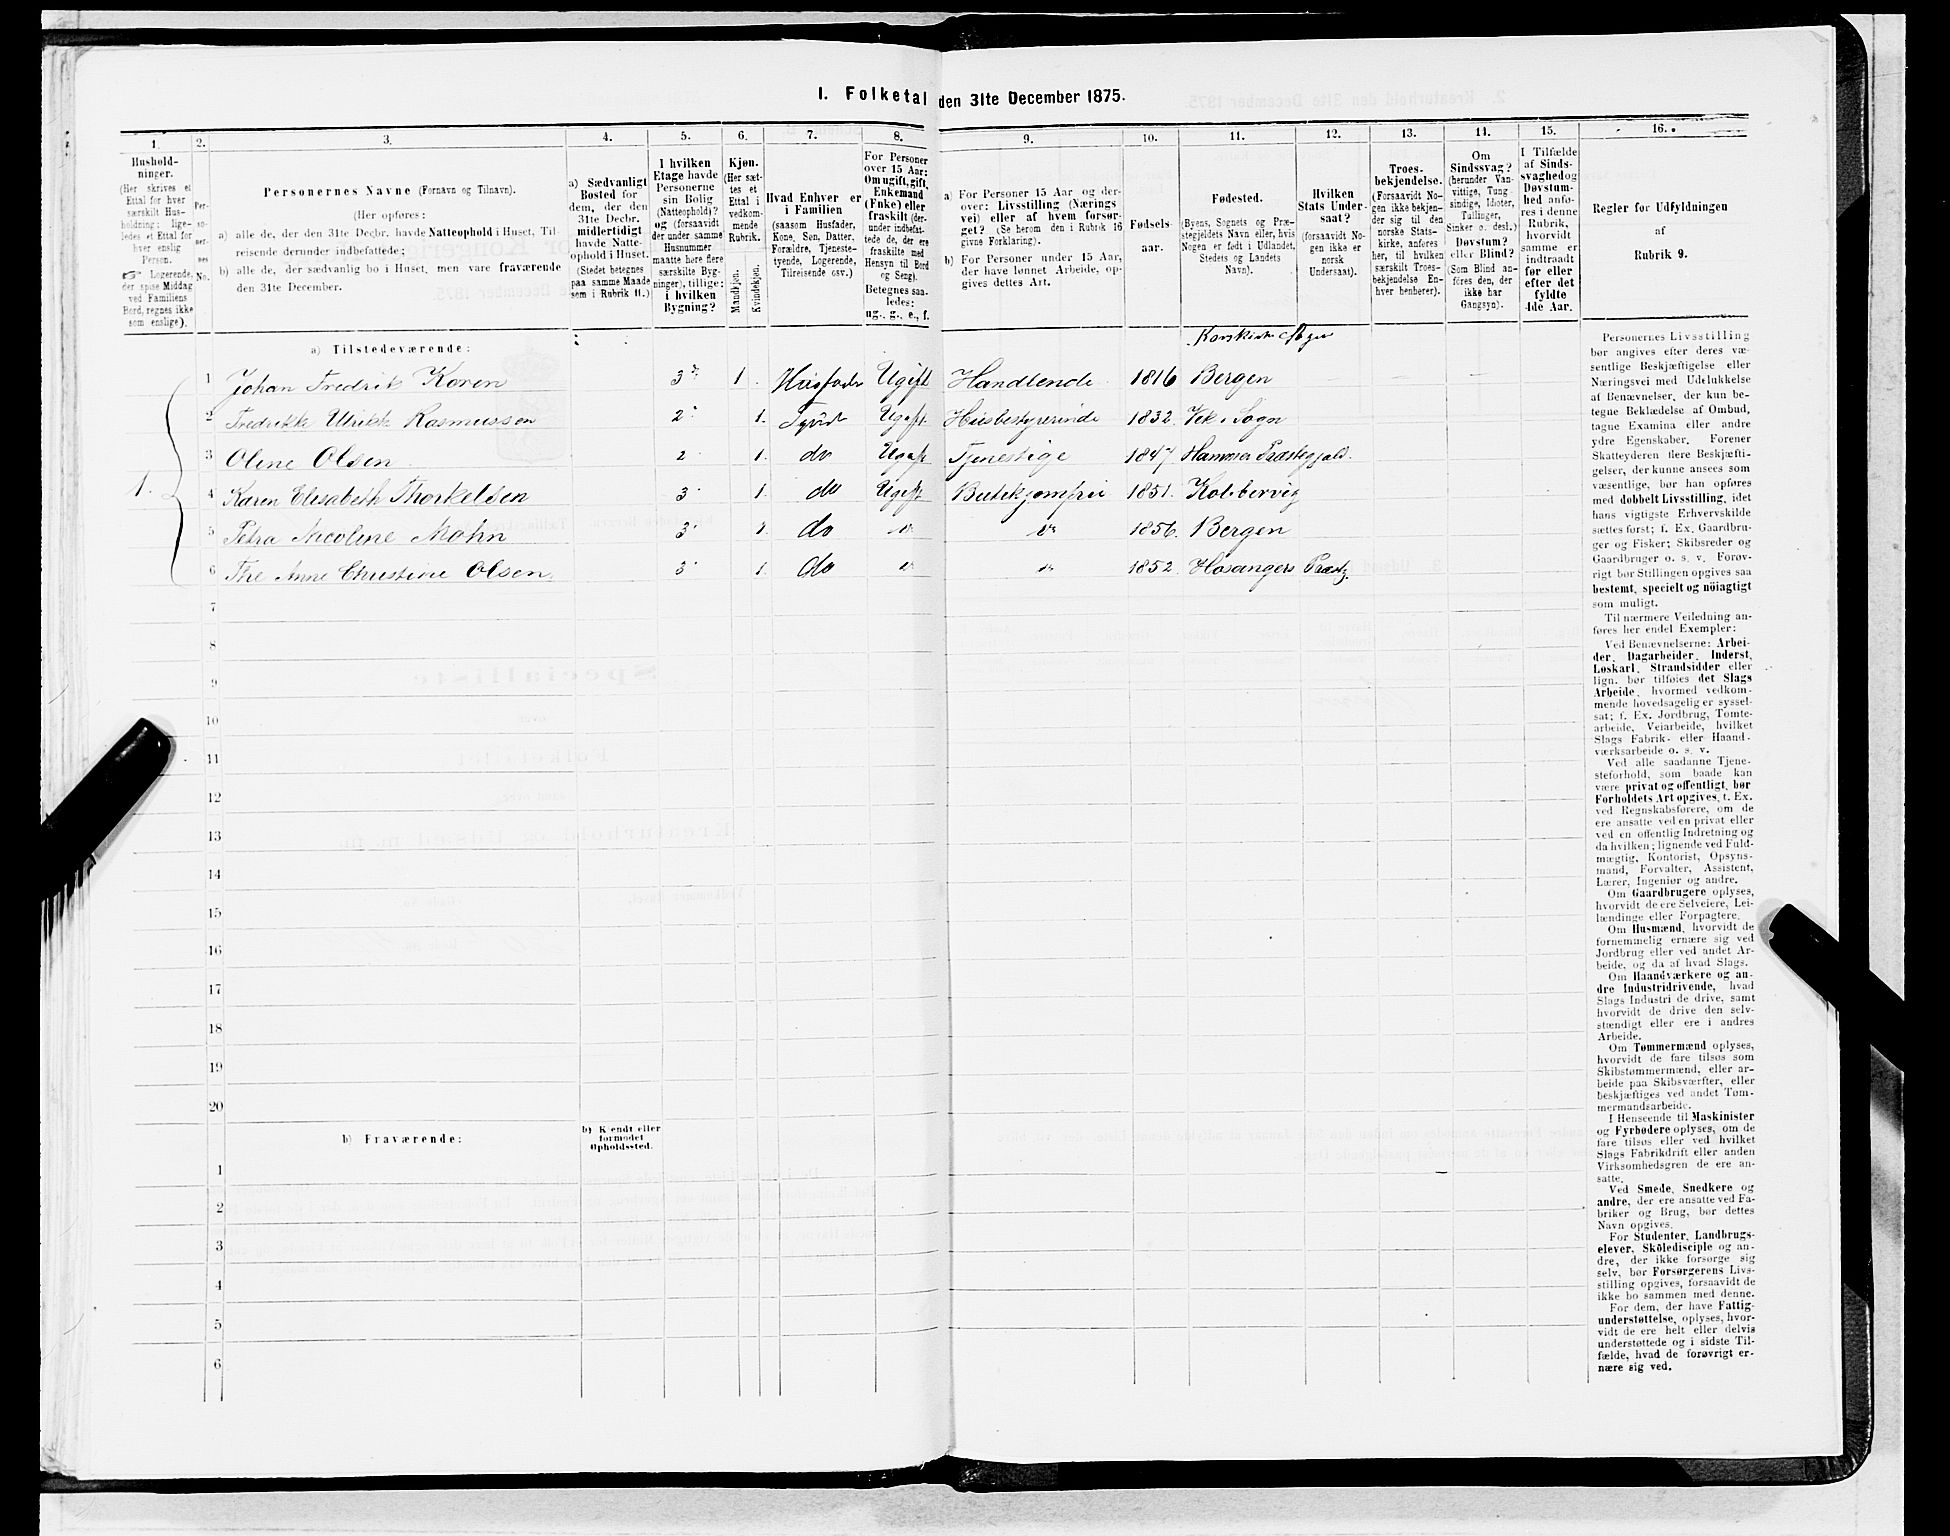 1. Folketal den 31te December 1875.
1.
Husholdninger.
(Her skrives et
Ettal for hver
særskilt Hus-
holdning; lige-
ledes et Ettal for
hver enslig
Person.
☞ Logerende,
der spise Middag
ved Familiens
Bord, regnes ikke
som enslige).
2.
Per-
so-
ner-
nes
No.
3.
Personernes Navne (Fornavn og Tilnavn).
(Her opføres:
a) alle de, der den 31te Decbr. havde Natteophold i Huset, Til-
reisende derunder indbefattede;
b) alle de, der sædvanlig bo i Huset, men vare fraværende
den 31te December.
4.
a) Sædvanligt
Bosted for
dem, der den
31te Decbr.
midlertidigt
havde Natte-
ophold i Huset.
(Stedet betegnes
paa samme Maade
som i Rubrik 11.)
5.
I hvilken
Etage havde
Personerne
sin Bolig
(Natteophold)?
og (forsaavidt
der under samme
Husnummer
maatte høre flere
særskilte Byg-
ninger), tillige:
i hvilken
Bygning?
6.
Kjøn.
(Her sæt-
tes et
Ettal i
vedkom-
mende
Rubrik.
Mandkjøn.
Kvindekjøn.
7.
Hvad Enhver er
i Familien
(saasom Husfader,
Kone, Søn, Datter,
Forældre, Tjeneste-
tyende, Logerende,
Tilreisende osv.)
8.
For Personer
over 15 Aar:
Om ugift, gift,
Enkemand
(Enke) eller
fraskilt (der-
under indbefat-
tede de, der ere
fraskilte med
Hensyn til Bord
og Seng).
Betegnes saa-
ledes:
ug., g., e., f.
9.
a) For Personer 15 Aar og der-
over: Livsstilling (Nærings
vei) eller af hvem forsør-
get? (Se herom den i Rubrik 16
givne Forklaring).
b) For Personer under 15 Aar,
der have lønnet Arbeide, op-
gives dettes Art.
10.
Fødsels-
aar.
11.
Fødested.
(Byens, Sognets og Præ-
stegjeldets Navn eller, hvis
Nogen er født i Udlandet,
Stedets og Landets
Navn).
12.
Hvilken
Stats Under-
saat?
(forsaavidt No-
gen ikke er
norsk
Undersaat).
13.
Troes-
bekjendelse.
(Forsaavidt No-
gen ikke bekjen-
der sig til den
norske Stats-
kirke, anføres
her, til hvilken
særskilt Troes-
bekjendelse En-
hver henhører).
14.
Om
Sindssvag?
(herunder Van-
vittige, Tung
sindige, Idioter,
Tullinger,
Sinker o. desl.)
Døvstum?
eller Blind?
(Som Blind an-
føres den, der
ikke har
Gangsyn).
15.
I Tilfælde
af Sinds-
svaghed og
Døvstum-
hed anfø-
res i denne
Rubrik,
hvorvidt
samme er
indtraadt
før eller
efter det
fyldte
4de Aar.
16.
Regler for Udfyldningen
af
Rubrik 9.
a) Tilstedeværende:
Korskirke Sogn
1 Johan Fredrik Koren 3 1. Husfader Ugift Handlende 1816 Bergen
2 Fredrikke Ulrikke Rasmussen 2 1. Tyende Ugift Husbestyrerinde 1832. Vik i Sogn
3 Oline Olsen 2 1. do Ugift Tjenestpige 1847 Præstegjeld.
1. 4 Karen Elisabeth Thorkelsen 3 1. do Ugift Butikjomfru 1851.
5 Petra Nicoline Mohn 3 1. do 1856. Bergen
6 Anne Christine Olsen. 3 1. do 1852. Hosangers Præstg.
7
8
9
10
11
12
13
14
15
16
17
18
19
20
b) Fraværende:
b) Kjendt eller
formodet
Opholdssted.
1
2
3
4
5
6
Personernes Livsstilling
bør angives efter deres væ-
sentlige Beskjæftigelse eller
Næringsvei med Udelukkelse
af Benævnelser, der kun be-
tegne Beklædelse af Ombud,
tagne Examina eller andre
ydre Egenskaber. Forener
Skatteyderen flere Beskjæfti-
gelser, der kunne ansees som
væsentlige, bør han opføres
med dobbelt Livsstilling, idet
hans vigtigste Erhvervskilde
sættes først; f. Ex. Gaardbru-
ger og Fisker; Skibsreder og
Gaardbruger o. s. v. Forøv-
rigt bør Stillingen opgives saa
bestemt, specielt og nöiagtigt
som muligt.
Til nærmere Veiledning an-
føres her endel Exempler:
Ved Benævnelserne: Arbei-
der, Dagarbeider, Inderst,
Løskarl, Strandsidder eller
lign. bør tilføies det Slags
Arbeide, hvormed vedkom-
mende hovedsagelig er syssel-
sat; f. Ex. Jordbrug, Tomte-
arbeide, Veiarbeide, hvilket
Slags Fabrik- eller Haand-
værksarbeide o. s. v.
Ved alle saadanne Tjene-
steforhold, som baade kan
være privat og offentligt, bør
Forholdets Art opgives, t. Ex.
ved Regnskabsførere, om de
ere ansatte ved en privat eller
ved en offentlig Indretning og
da hvilken; lignende ved Fuld-
mægtig, Kontorist, Opsyns-
mand, Forvalter, Assistent,
Lærer, Ingeniør og andre.
Om Gaardbrugere oplyses,
hvorvidt de ere Selveiere, Lei-
lændinge eller Forpagtere.
Om Husmænd, hvorvidt de
fornemmelig ernære sig ved
Jordbrug eller ved andet Ar-
beide, og da af hvad Slags.
Om Haandværkere og an-
dre Industridrivende, hvad
Slags Industri de drive, samt
hvorvidt de drive den selv-
stændigt eller ere i andres
Arbeide.
Om Tømmermænd oplyses,
hvorvidt de fare tilsøs som
Skibstømmermænd, eller ar-
beide paa Skibsværfter, eller
beskjæftiges ved andet Tøm-
mermandsarbeide.
I Henseende til Maskinister
og Fyrbødere oplyses, om de
fare tilsøs eller ved hvilket
Slags Fabrikdrift eller anden
Virksomhedsgren de ere an-
satte.
Ved Smede, Snedkere og
andre, der ere ansatte ved Fa-
briker og Brug, bør dettes
Navn opgives.
For Studenter, Landbrugs-
elever, Skoledisciple og an-
dre, der ikke forsørge sig
selv, bør Forsørgerens Livs-
stilling opgives, forsaavidt de
ikke bo sammen med denne.
For dem, der have Fattig-
understøttelse, oplyses, hvor-
vidt de ere helt eller delvis
understøttede og i sidste Til-
fælde, hvad de forøvrigt er-
nære sig ved.